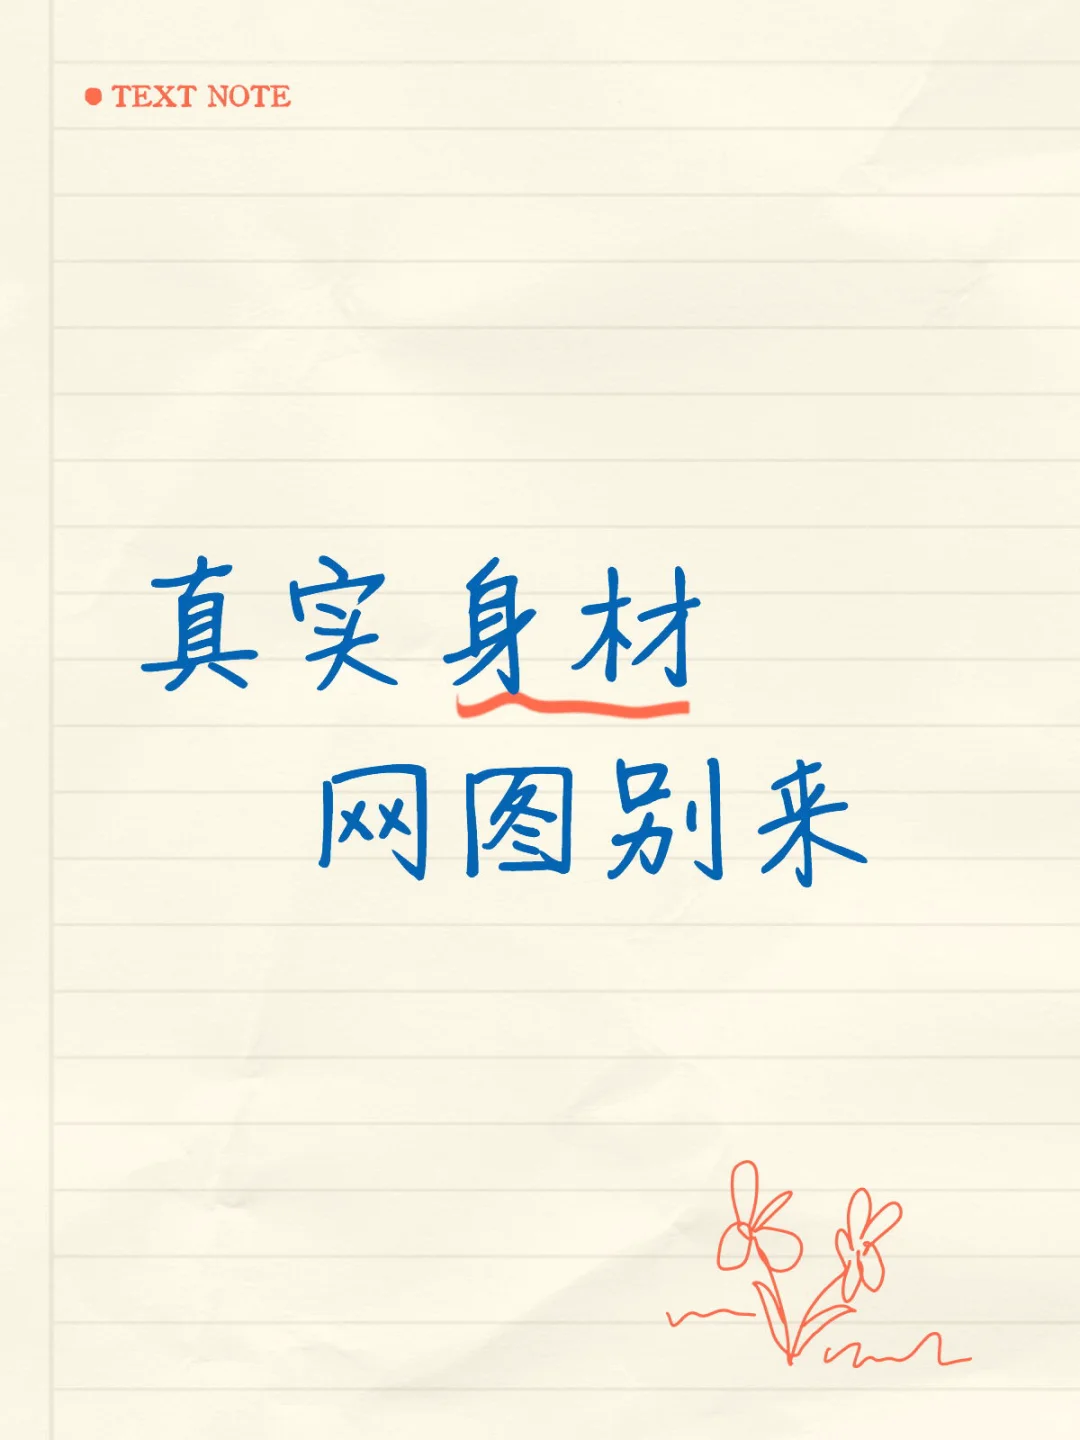 TEXT NOTE
真实身材
网图别来